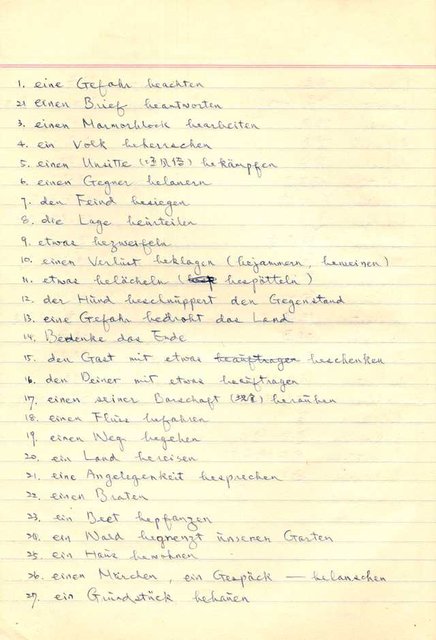 1. eine Gefahr beachten
21 einen Brief beantworten
3. einen Marmorblock bearbeiten
4. ein Volk beherrschen
5. einen Unsitte (坏风俗) bekämpfen
6. einen Gegner belauern
7. den Feind besiegen
8. die Lage beurteilen
9. etwas bezweifeln
10. einen Verlust beklagen (bejammern, beweinen)
11. etwas belächeln (bespötteln)
12. der Hund beschnuppert den Gegenstand
13. eine Gefahr bedroht das Land
14. Bedenke das Ende
15. den Gast mit etwas beauftragen beschenken
16. den Deiner mit etwas beauftragen
17. einen seiner Barschaft (现金) berauben
18. einen Fluss befahren
19. einen Weg begehen
20. ein Land bereisen
21. eine Angelegenkeit besprechen
22. einen Braten
23. ein Beet bepflanzen
20. ein Wald begrenzt unseren Garten
25 ein Haus bewohnen
26. einen Märchen, ein Gespäck — belauschen
27. ein Grundstück bebauen